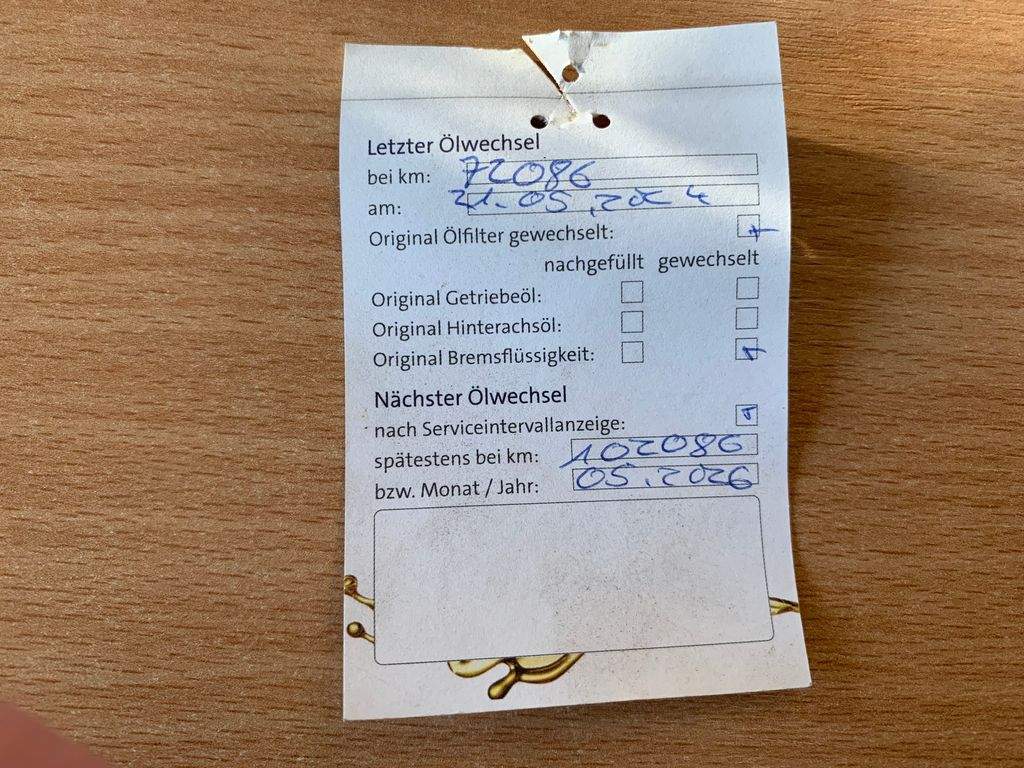 Letzter Ölwechsel
bei km: 72086
am: 21.05.2024
Original Ölfilter gewechselt:
nachgefüllt gewechselt
Original Getriebeöl:
Original Hinterachsöl:
Original Bremsflüssigkeit:
Nächster Ölwechsel
nach Serviceintervallanzeige:
spätestens bei km: 102086
bzw. Monat / Jahr: 05.2026